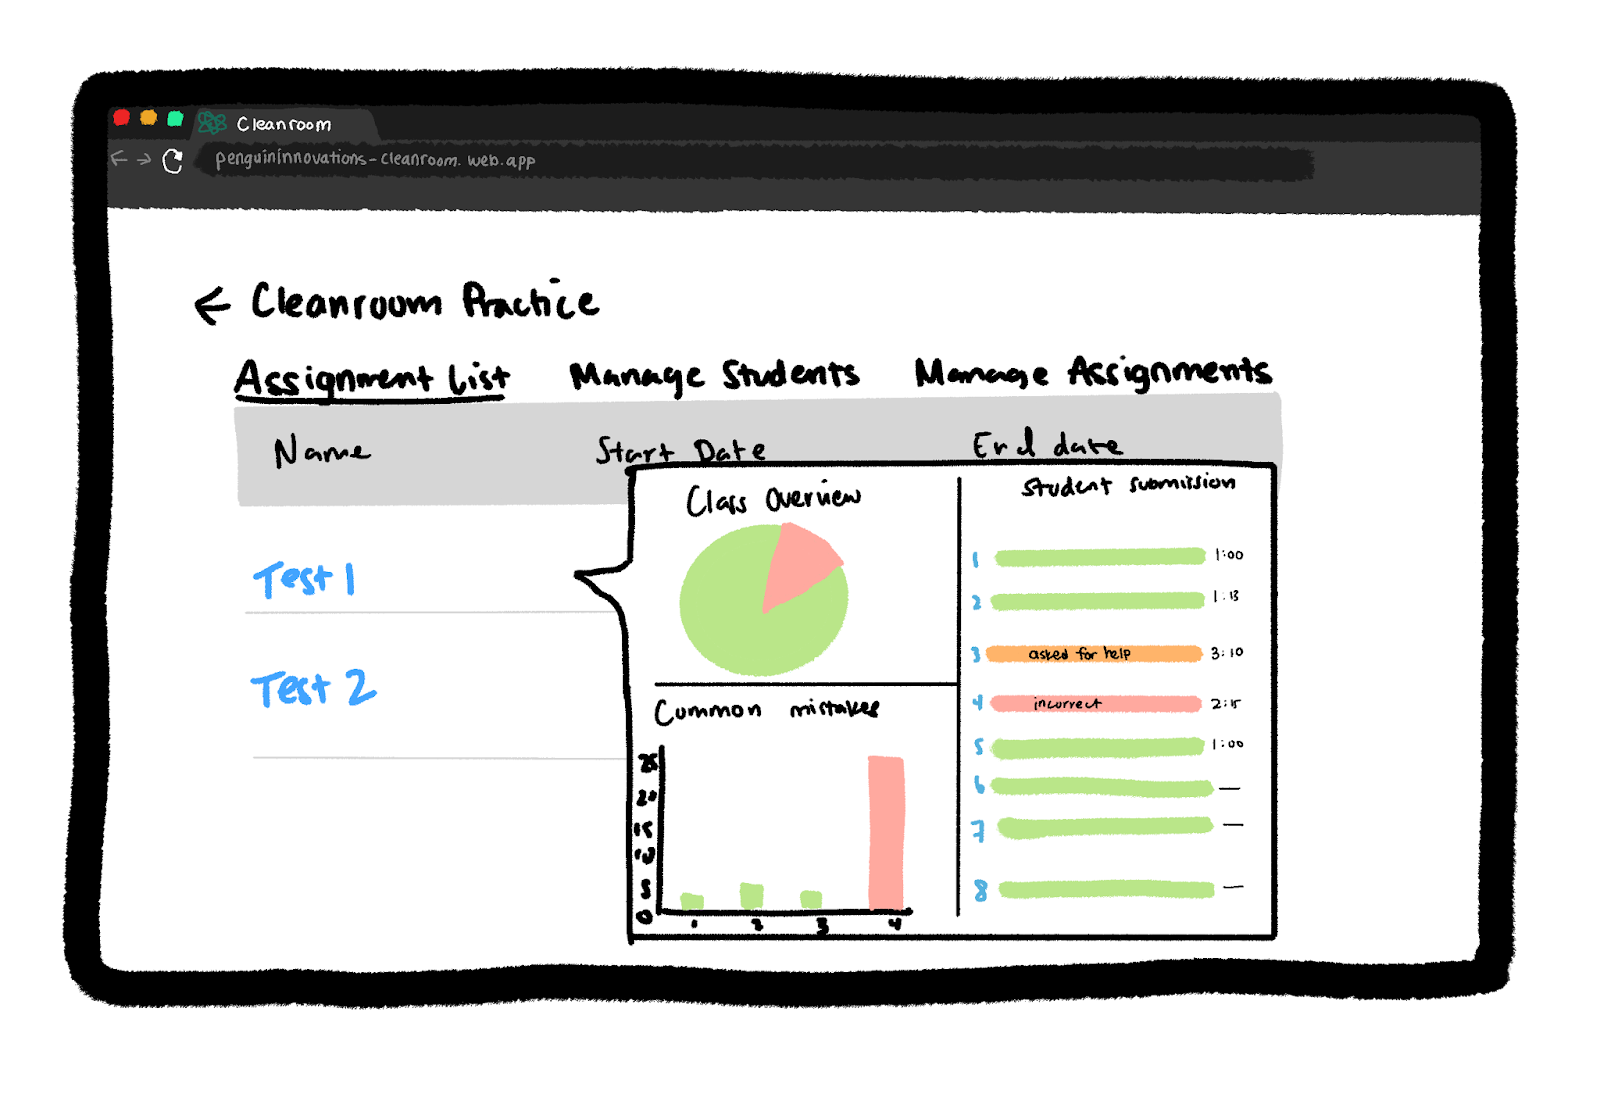 Cleanroom
penguininnovations-cleanroom.web.app
← Cleanroom Practice
Assignment List Manage Students Manage Assignments
Name Start Date End date
Test 1
Test 2
Class Overview
Common mistakes
25
20
15
10
5
0
1 2 3 4
Student submission
1 1:00
2 1:13
3 asked for help 3:10
4 incorrect 2:15
5 1:00
6 —
7 —
8 —